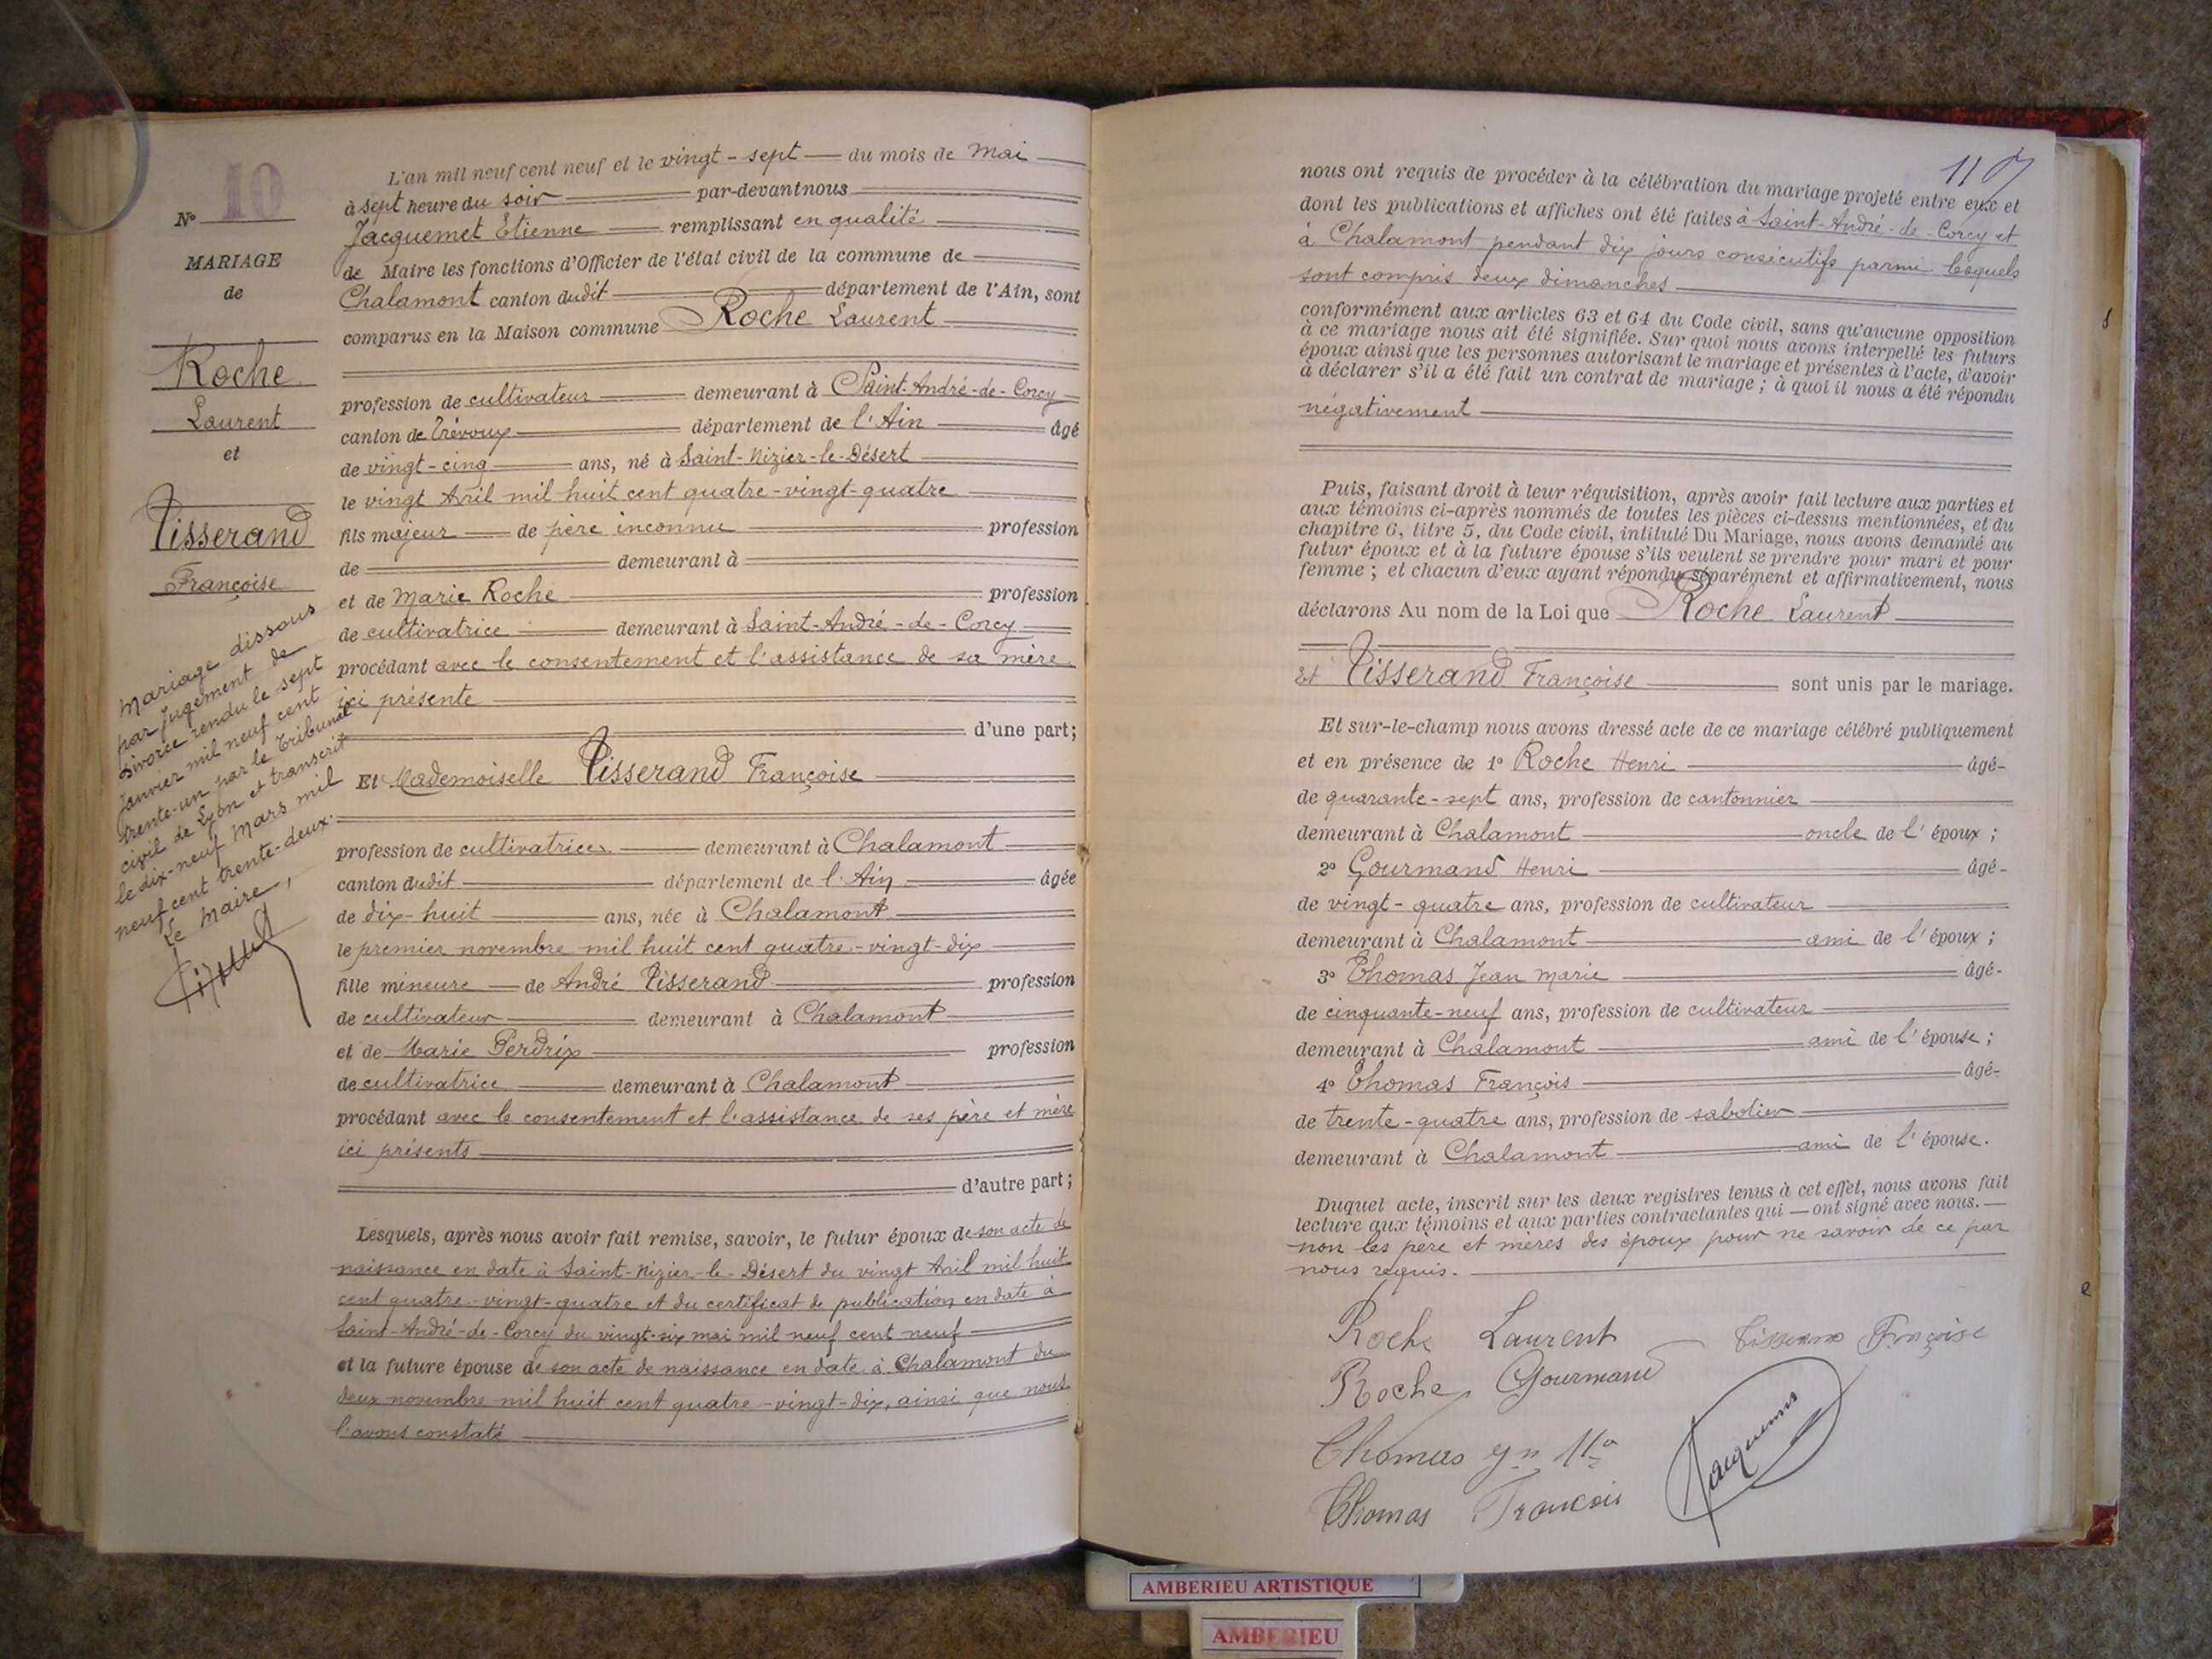 N° 10
MARIAGE
de
Roche
Laurent
et
Tisserand
Françoise
Mariage dissous
par jugement de
divorce rendu le sept
Janvier mil neuf cent
trente-un par le Tribunal
civil de Lyon et transcrit
le dix-neuf Mars mil
neuf cent trente-deux.
Le Maire,
L'an mil neuf cent neuf et le vingt-sept du mois de Mai
à sept heure du soir par-devant nous
Jacquemet Etienne remplissant en qualité
de Maire les fonctions d'Officier de l'état civil de la commune de
Chalamont canton dudit département de l'Ain, sont
comparus en la Maison commune Roche Laurent
profession de cultivateur demeurant à Saint-André-de-Corcy
canton de Trévoux département de l'Ain âgé
de vingt-cinq ans, né à Saint-Nizier-le-Désert
le vingt Avril mil huit cent quatre-vingt-quatre
fils majeur de père inconnu profession
de demeurant à
et de Marie Roche profession
de cultivatrice demeurant à Saint-André-de-Corcy
procédant avec le consentement et l'assistance de sa mère
ici présente
d'une part;
Et Mademoiselle Tisserand Françoise
profession de cultivatrice demeurant à Chalamont
canton dudit département de l'Ain âgée
de dix-huit ans, née à Chalamont
le premier novembre mil huit cent quatre-vingt-dix
fille mineure de André Tisserand profession
de cultivateur demeurant à Chalamont
et de Marie Perdrix profession
de cultivatrice demeurant à Chalamont
procédant avec le consentement et l'assistance de ses père et mère
ici présents
d'autre part;
Lesquels, après nous avoir fait remise, savoir, le futur époux de son acte de
naissance en date à Saint-Nizier-le-Désert du vingt Avril mil huit
cent quatre-vingt-quatre et du certificat de publication en date à
Saint-André-de-Corcy du vingt-six mai mil neuf cent neuf
et la future épouse de son acte de naissance en date à Chalamont du
deux novembre mil huit cent quatre-vingt-dix, ainsi que nous
l'avons constaté
nous ont requis de procéder à la célébration du mariage projeté entre eux et
dont les publications et affiches ont été faites à Saint-André-de-Corcy et
à Chalamont pendant dix jours consécutifs parmi lesquels
sont compris deux dimanches
conformément aux articles 63 et 64 du Code civil, sans qu'aucune opposition
à ce mariage nous ait été signifiée. Sur quoi nous avons interpellé les futurs
époux ainsi que les personnes autorisant le mariage et présentes à l'acte, d'avoir
à déclarer s'il a été fait un contrat de mariage; à quoi il nous a été répondu
négativement
Puis, faisant droit à leur réquisition, après avoir fait lecture aux parties et
aux témoins ci-après nommés de toutes les pièces ci-dessus mentionnées, et du
chapitre 6, titre 5, du Code civil, intitulé Du Mariage, nous avons demandé au
futur époux et à la future épouse s'ils veulent se prendre pour mari et pour
femme; et chacun d'eux ayant répondu séparément et affirmativement, nous
déclarons Au nom de la Loi que Roche Laurent
Et Tisserand Françoise sont unis par le mariage.
Et sur-le-champ nous avons dressé acte de ce mariage célébré publiquement
et en présence de 1° Roche Henri âgé
de quarante-sept ans, profession de cantonnier
demeurant à Chalamont oncle de l'époux;
2° Gourmand Henri âgé
de vingt-quatre ans, profession de cultivateur
demeurant à Chalamont ami de l'époux;
3° Thomas Jean Marie âgé
de cinquante-neuf ans, profession de cultivateur
demeurant à Chalamont ami de l'épouse;
4° Thomas François âgé
de trente-quatre ans, profession de sabotier
demeurant à Chalamont ami de l'épouse.
Duquel acte, inscrit sur les deux registres tenus à cet effet, nous avons fait
lecture aux témoins et aux parties contractantes qui ont signé avec nous.
non les père et mères des époux pour ne savoir de ce par
nous requis.
Roche Laurent Tisserand Françoise
Roche Gourmand
Thomas Jn Ma
Thomas Francois
Jacquemet
AMBERIEU ARTISTIQUE
AMBERIEU